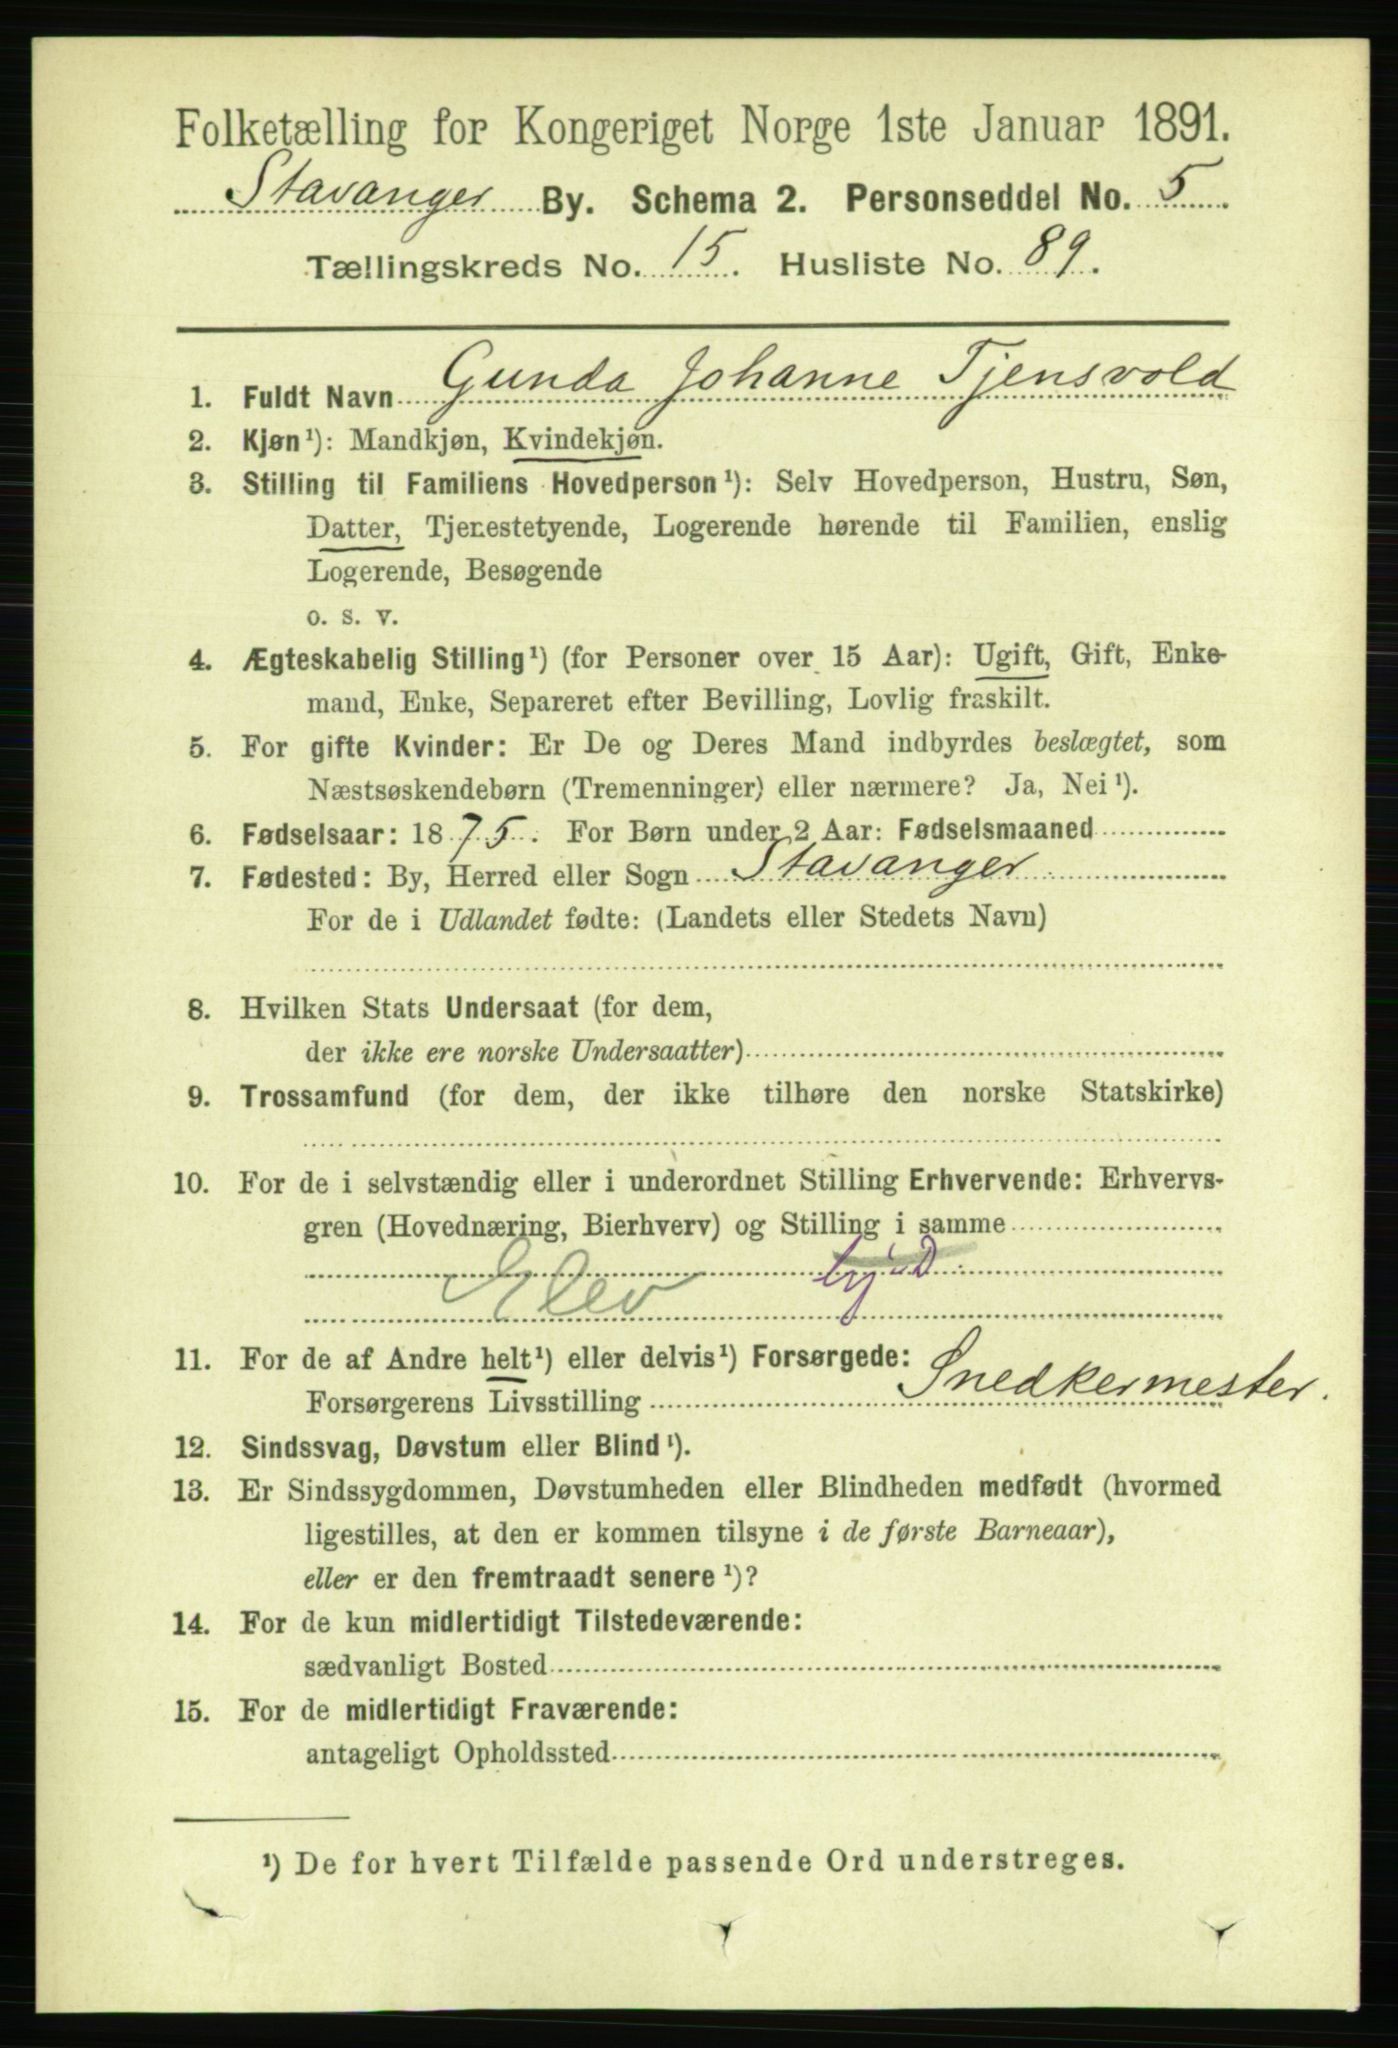 Folketælling for Kongeriget Norge 1ste Januar 1891.
Stavanger By. Schema 2. Personseddel No. 5.
Tællingskreds No. 15. Husliste No. 89.
1. Fuldt Navn Gunda Johanne Tjensvold
2. Kjøn¹): Mandkjøn, Kvindekjøn.
3. Stilling til Familiens Hovedperson¹): Selv Hovedperson, Hustru, Søn,
Datter, Tjenestetyende, Logerende hørende til Familien, enslig
Logerende, Besøgende
o. s. v.
4. Ægteskabelig Stilling¹) (for Personer over 15 Aar): Ugift, Gift, Enke-
mand, Enke, Separeret efter Bevilling, Lovlig fraskilt.
5. For gifte Kvinder: Er De og Deres Mand indbyrdes beslægtet, som
Næstsøskendebørn (Tremenninger) eller nærmere? Ja, Nei¹).
6. Fødselsaar: 1875. For Børn under 2 Aar: Fødselsmaaned
7. Fødested: By, Herred eller Sogn Stavanger.
For de i Udlandet fødte: (Landets eller Stedets Navn)
8. Hvilken Stats Undersaat (for dem,
der ikke ere norske Undersaatter)
9. Trossamfund (for dem, der ikke tilhøre den norske Statskirke)
10. For de i selvstændig eller i underordnet Stilling Erhvervende: Erhvervs-
gren (Hovednæring, Bierhverv) og Stilling i samme
Elev
11. For de af Andre helt¹) eller delvis¹) Forsørgede:
Forsørgerens Livsstilling Snedkermester.
12. Sindssvag, Døvstum eller Blind¹).
13. Er Sindssygdommen, Døvstumheden eller Blindheden medfødt (hvormed
ligestilles, at den er kommen tilsyne i de første Barneaar),
eller er den fremtraadt senere¹)?
14. For de kun midlertidigt Tilstedeværende:
sædvanligt Bosted
15. For de midlertidigt Fraværende:
antageligt Opholdssted
¹) De for hvert Tilfælde passende Ord understreges.